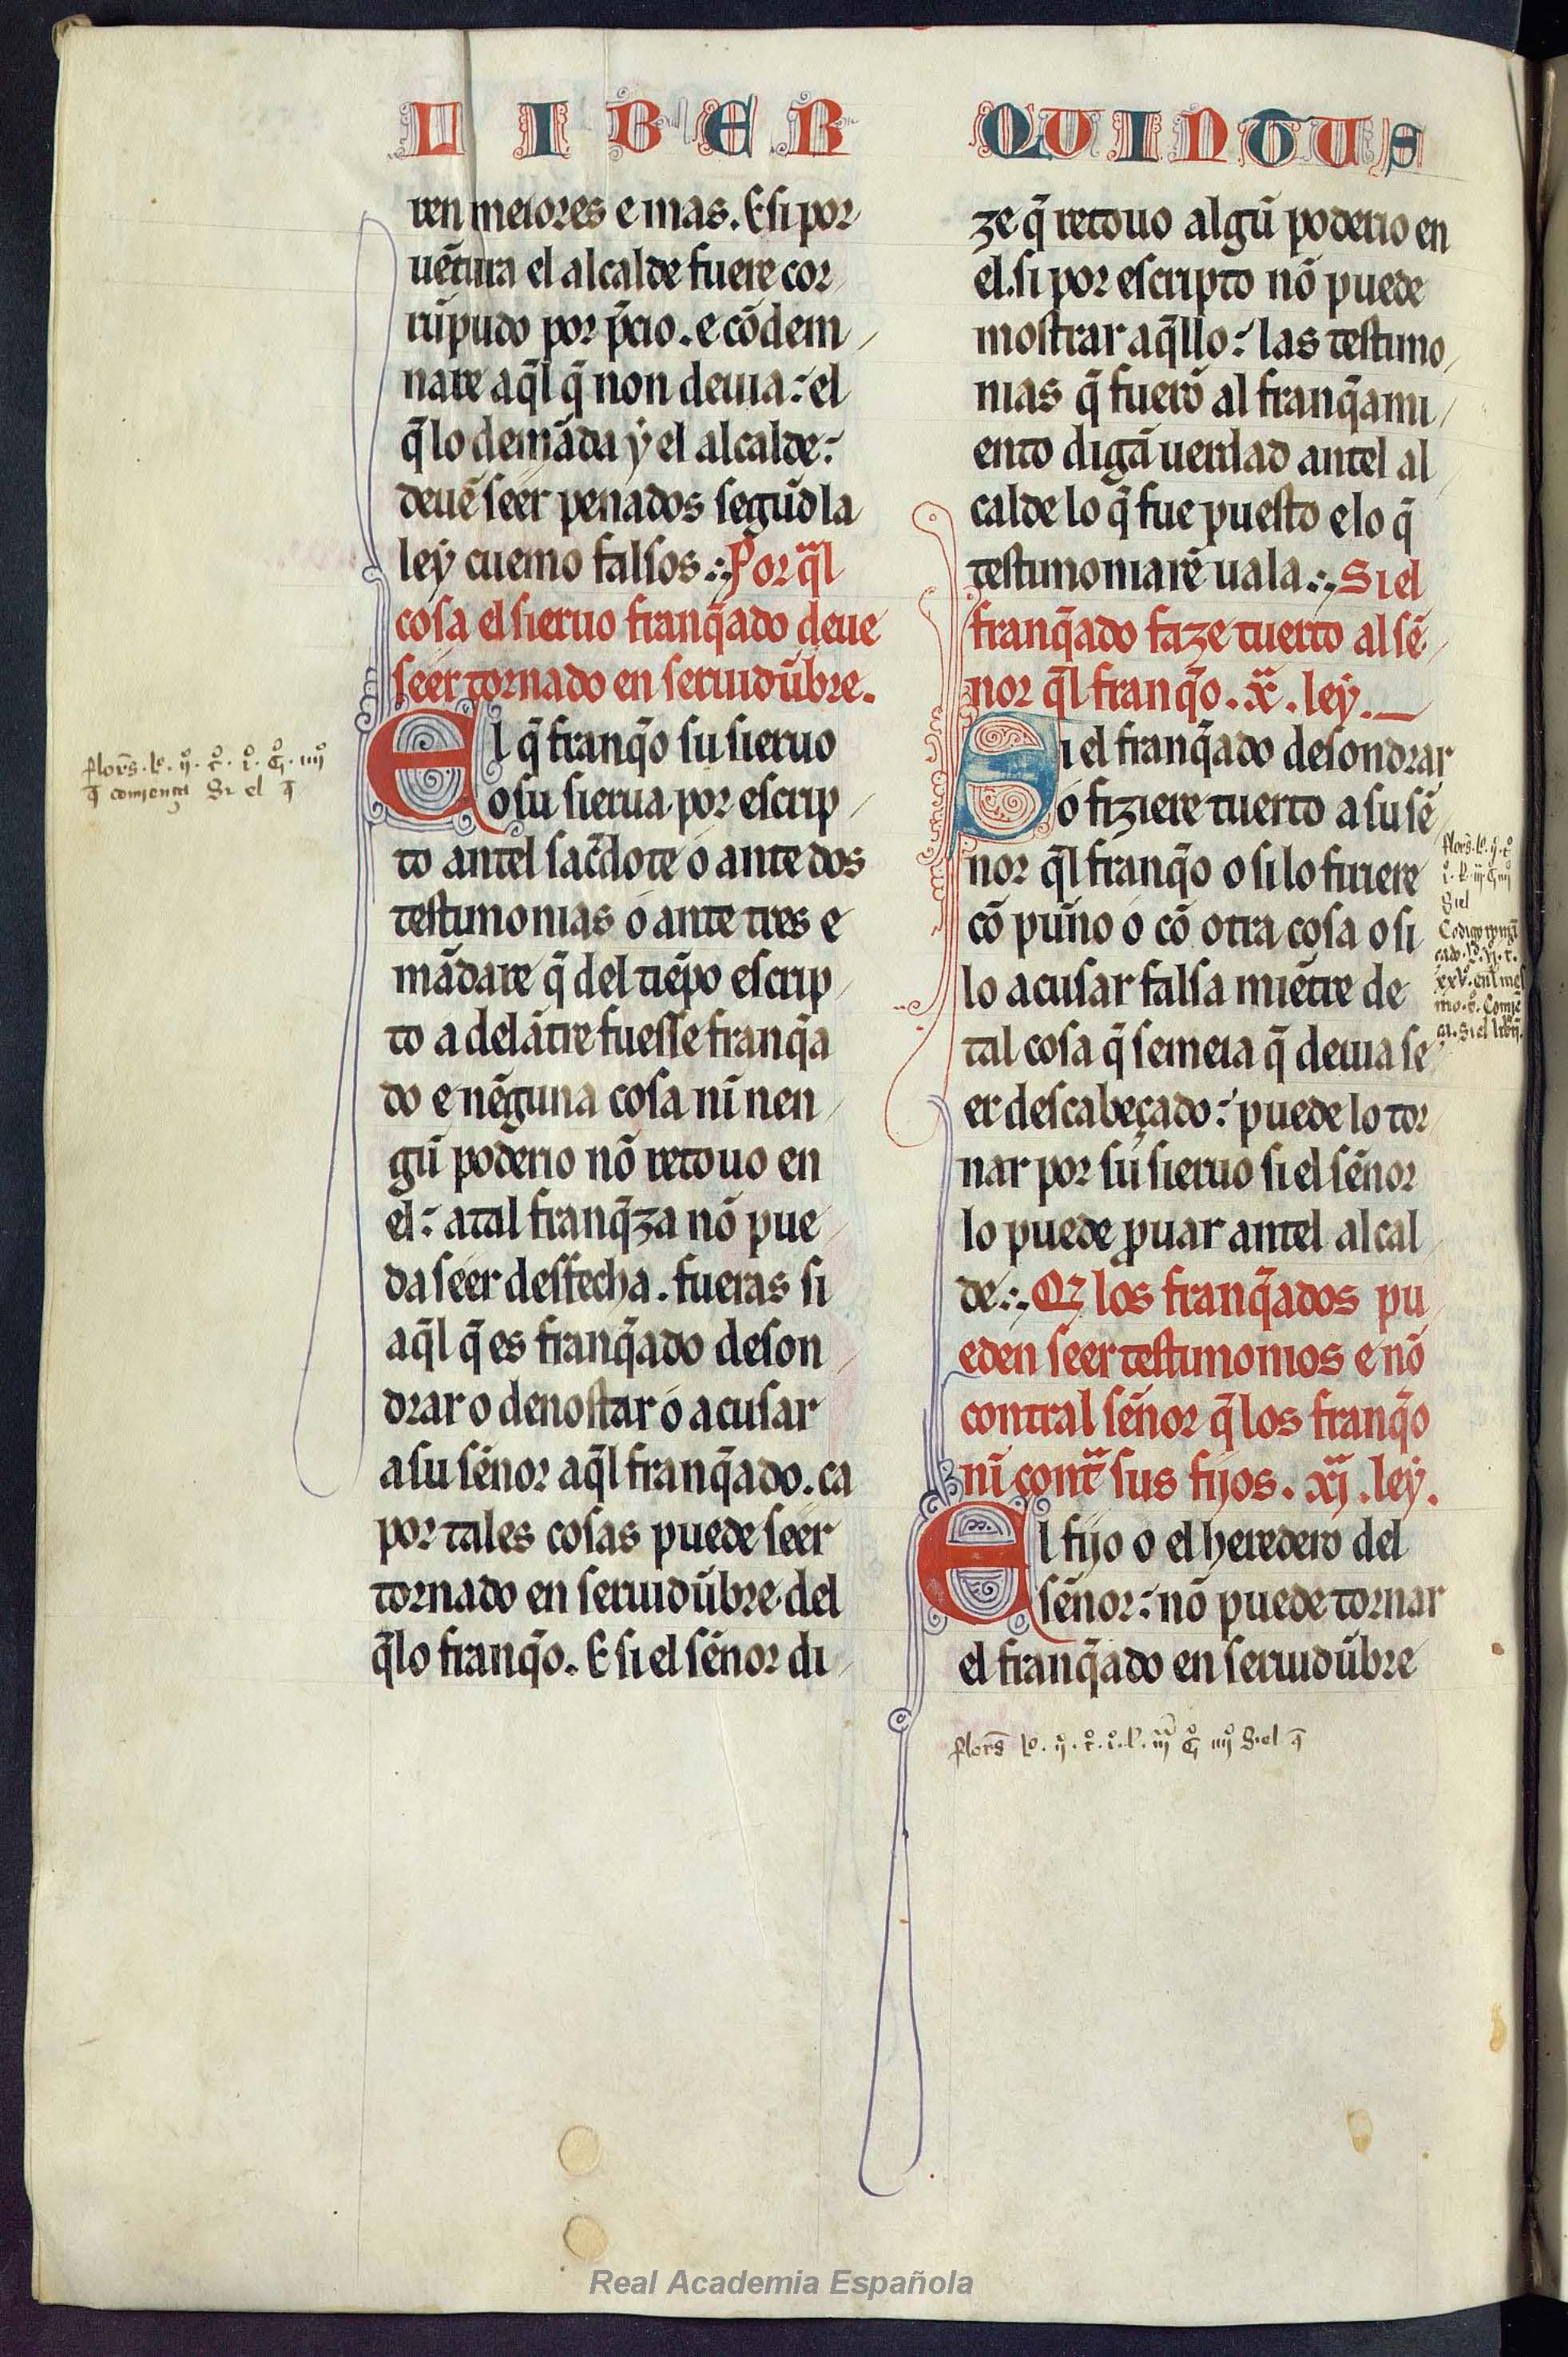 LIBER QUINTUS
ren meiores e mas. E si por
uẽtura el alcalde fuere cor
rũpudo por p̃cio. e cõdem
nare aq̃l q̃ non deuia: el
q̃ lo demãda ẏ el alcalde:
deuẽ seer penados segũd la
leẏ cuemo falsos. Por q̃l
cosa el sieruo franq̃ado deue
seer tornado en seruidũbre.
El q̃ franq̃o su sieruo
o su sierua por escrip
to antel sac̃dote o ante dos
testimonias o ante tres e
mãdare q̃ del tiẽpo escrip
to adelãtre fuesse franq̃a
do e nẽguna cosa nĩ nen
gũ poderio nõ retouo en
el: atal franq̃za nõ pue
da seer desfecha. fueras si
aq̃l q̃ es franq̃ado deson
drar o denostar o acusar
a su sẽnor aq̃l franq̃ado. ca
por tales cosas puede seer
tornado en seruidũbre del
q̃ lo franq̃o. E si el sẽnor di
ze q̃ retouo algũ poderio en
el. si por escripto nõ puede
mostrar aq̃llo: las testimo
nias q̃ fuerõ al franq̃ami
ento digã uerdad antel al
calde lo q̃ fue puesto e lo q̃
testimoniarẽ uala. Si el
franq̃ado faze tuerto al sẽ
nor q̃l franq̃o. x̃. leẏ.
Si el franq̃ado desondrar
o fiziere tuerto a su sẽ
nor q̃l franq̃o o si lo firiere
cõ pũno o cõ otra cosa o si
lo acusar falsa miẽtre de
tal cosa q̃ semeia q̃ deuia se
er descabeçado: puede lo tor
nar por su sieruo si el sẽnor
lo puede ꝓuar antel alcal
de. Q̃ los franq̃ados pu
eden seer testimonios e nõ
contral sẽnor q̃ los franq̃o
nĩ cont̃ sus fijos. xj. leẏ.
El fijo o el heredero del
sẽnor: nõ puede tornar
el franq̃ado en seruidũbre
q̃ comiença Si el q̃
Si el
Real Academia Española